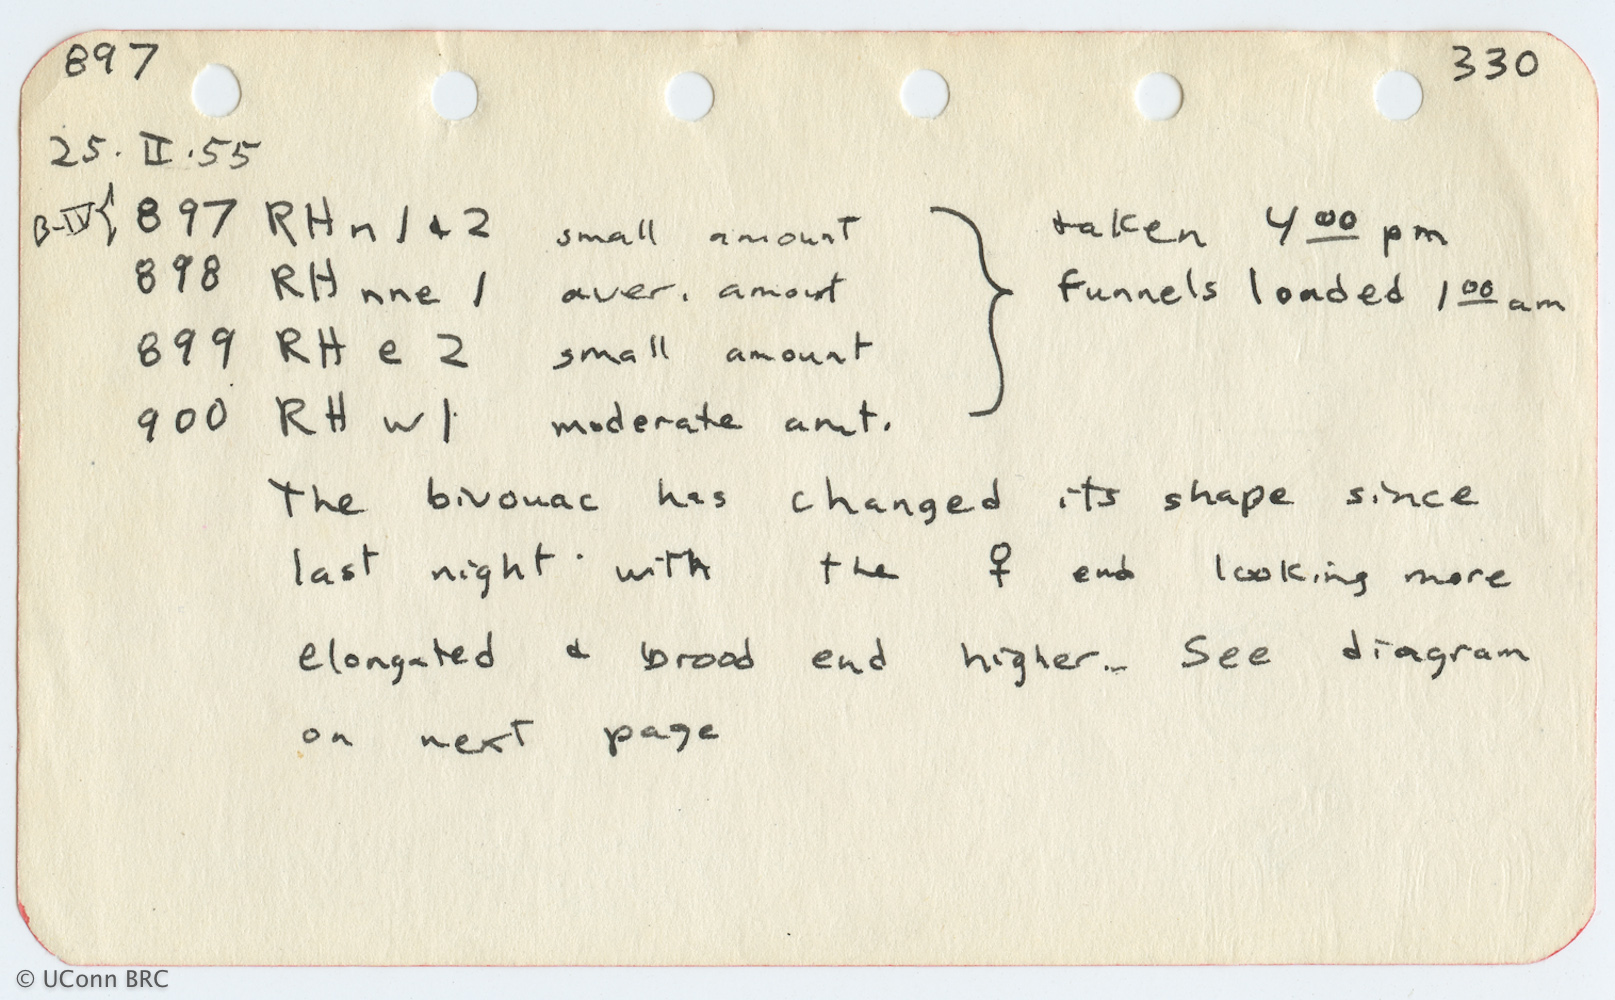 897 330
25.II.55
B-IV{ 897 RH n 1 & 2 small amount } taken 4 00 pm
898 RH nne 1 aver. amount funnels loaded 1 00 am
899 RH e 2 small amount
900 RH w 1 moderate amt.
The bivouac has changed its shape since
last night with the ♀ end looking more
elongated & brood end higher. See diagram
on next page
© UConn BRC